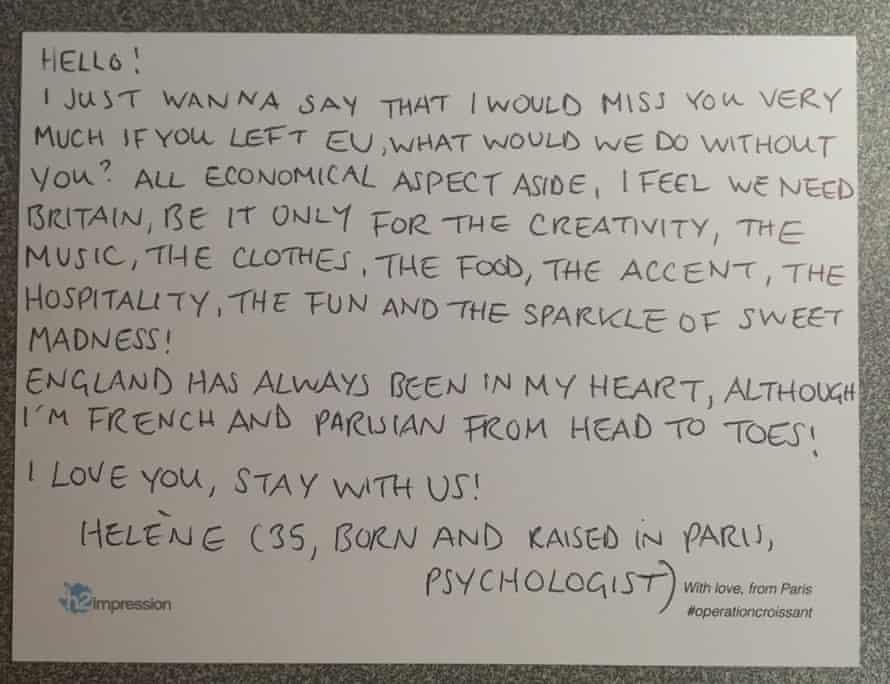 HELLO!
I JUST WANNA SAY THAT I WOULD MISS YOU VERY
MUCH IF YOU LEFT EU, WHAT WOULD WE DO WITHOUT
YOU? ALL ECONOMICAL ASPECT ASIDE, I FEEL WE NEED
BRITAIN, BE IT ONLY FOR THE CREATIVITY, THE
MUSIC, THE CLOTHES, THE FOOD, THE ACCENT, THE
HOSPITALITY, THE FUN AND THE SPARKLE OF SWEET
MADNESS!
ENGLAND HAS ALWAYS BEEN IN MY HEART, ALTHOUGH
I'M FRENCH AND PARISIAN FROM HEAD TO TOES!
I LOVE YOU, STAY WITH US!
HELÈNE (35, BORN AND RAISED IN PARIS,
PSYCHOLOGIST)
h2impression
With love, from Paris
#operationcroissant